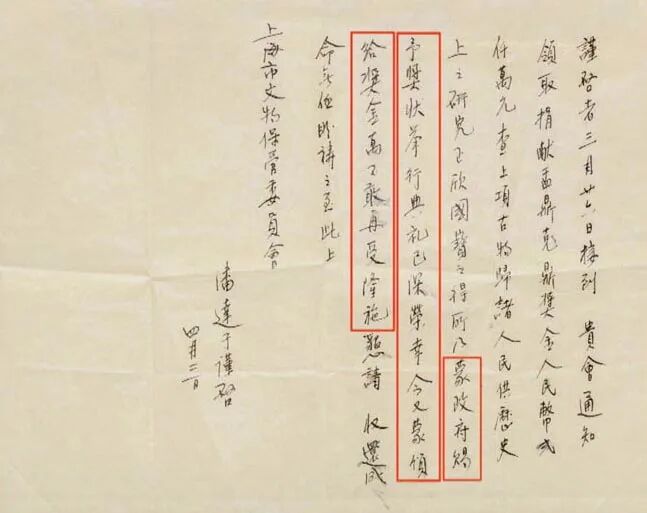 謹啓者三月廿六日接到 貴會通知
領取捐献盂鼎克鼎獎金人民幣弍
仟萬元查上項古物歸諸人民供歷史
上之研究正欣國寶之得所乃蒙政府賜
予奬狀舉行典礼已深榮幸今又蒙頒
給奬金萬不敢再受隆施懇請 收還成
命無任盼禱之至此上
上海市文物保管委員會
潘達于謹啓
四月二日